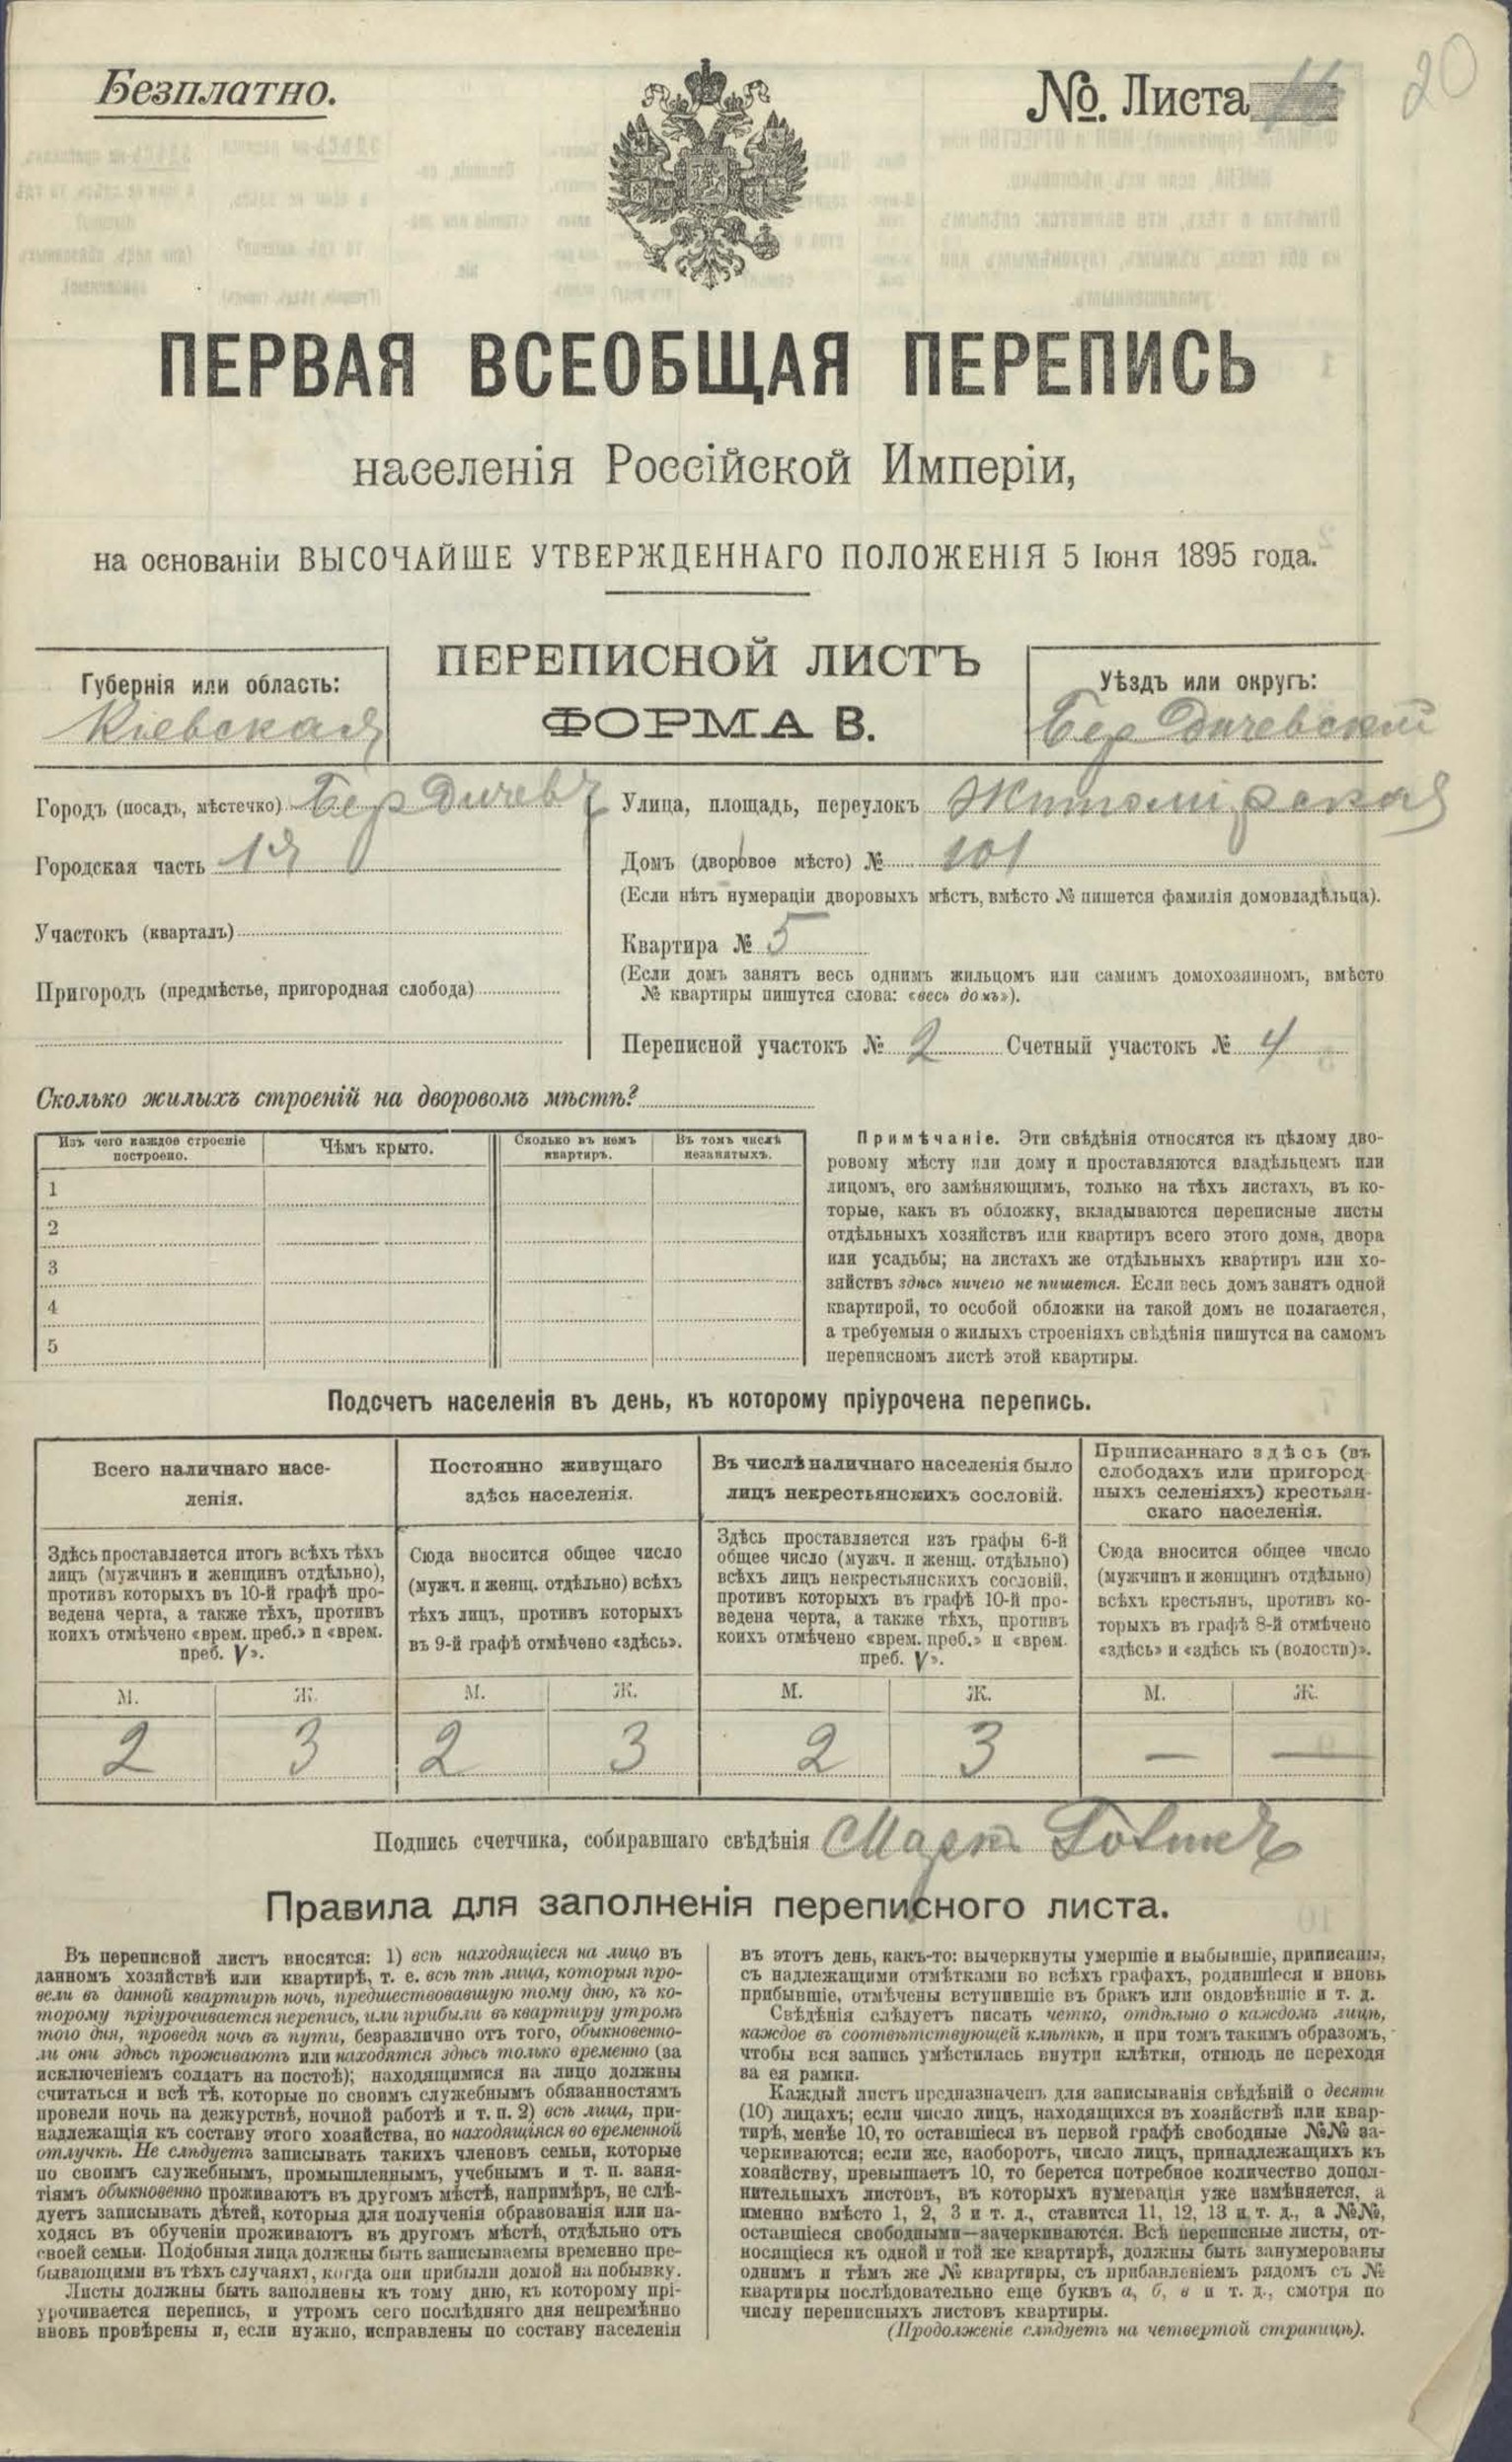 Безплатно.
№. Листа
20
ПЕРВАЯ ВСЕОБЩАЯ ПЕРЕПИСЬ
населенія Россійской Имперіи,
на основаніи ВЫСОЧАЙШЕ УТВЕРЖДЕННАГО ПОЛОЖЕНІЯ 5 Іюня 1895 года.
ПЕРЕПИСНОЙ ЛИСТЪ
ФОРМА В.
Губернія или область:
Кіевская
Уѣздъ или округъ:
Бердичевскій
Городъ (посадъ, мѣстечко) Бердичевъ
Городская часть 1я
Участокъ (кварталъ)
Пригородъ (предмѣстье, пригородная слобода)
Улица, площадь, переулокъ Житомірская
Домъ (дворовое мѣсто) № 101
(Если нѣтъ нумераціи дворовыхъ мѣстъ, вмѣсто № пишется фамилія домовладѣльца).
Квартира № 5
(Если домъ занятъ весь однимъ жильцомъ или самимъ домохозяиномъ, вмѣсто
№ квартиры пишутся слова: «весь домъ»).
Переписной участокъ № 2 Счетный участокъ № 4
Сколько жилыхъ строеній на дворовомъ мѣстѣ?
Изъ чего каждое строеніе
построено.
Чѣмъ крыто.
Сколько въ немъ
квартиръ.
Въ томъ числѣ
незанятыхъ.
1
2
3
4
5
Примѣчаніе. Эти свѣдѣнія относятся къ цѣлому дво-
ровому мѣсту или дому и проставляются владѣльцемъ или
лицомъ, его замѣняющимъ, только на тѣхъ листахъ, въ ко-
торые, какъ въ обложку, вкладываются переписные листы
отдѣльныхъ хозяйствъ или квартиръ всего этого дома, двора
или усадьбы; на листахъ же отдѣльныхъ квартиръ или хо-
зяйствъ здѣсь ничего не пишется. Если весь домъ занятъ одной
квартирой, то особой обложки на такой домъ не полагается,
а требуемыя о жилыхъ строеніяхъ свѣдѣнія пишутся на самомъ
переписномъ листѣ этой квартиры.
Подсчетъ населенія въ день, къ которому пріурочена перепись.
Всего наличнаго насе-
ленія.
Здѣсь проставляется итогъ всѣхъ тѣхъ
лицъ (мужчинъ и женщинъ отдѣльно),
противъ которыхъ въ 10-й графѣ про-
ведена черта, а также тѣхъ, противъ
коихъ отмѣчено «врем. преб.» и «врем.
преб. V».
Постоянно живущаго
здѣсь населенія.
Сюда вносится общее число
(мужч. и женщ. отдѣльно) всѣхъ
тѣхъ лицъ, противъ которыхъ
въ 9-й графѣ отмѣчено «здѣсь».
Въ числѣ наличнаго населенія было
лицъ некрестьянскихъ сословій.
Здѣсь проставляется изъ графы 6-й
общее число (мужч. и женщ. отдѣльно)
всѣхъ лицъ некрестьянскихъ сословій,
противъ которыхъ въ графѣ 10-й про-
ведена черта, а также тѣхъ, противъ
коихъ отмѣчено «врем. преб.» и «врем.
преб. V».
Приписаннаго здѣсь (въ
слободахъ или пригород-
ныхъ селеніяхъ) крестьян-
скаго населенія.
Сюда вносится общее число
(мужчинъ и женщинъ отдѣльно)
всѣхъ крестьянъ, противъ ко-
торыхъ въ графѣ 8-й отмѣчено
«здѣсь» и «здѣсь къ (волости)».
М. Ж. М. Ж. М. Ж. М. Ж.
2 3 2 3 2 3 — —
Подпись счетчика, собиравшаго свѣдѣнія
Правила для заполненія переписного листа.
Въ переписной листъ вносятся: 1) всѣ находящіеся на лицо въ
данномъ хозяйствѣ или квартирѣ, т. е. всѣ тѣ лица, которыя про-
вели въ данной квартирѣ ночь, предшествовавшую тому дню, къ ко-
торому пріурочивается перепись, или прибыли въ квартиру утромъ
того дня, проведя ночь въ пути, безразлично отъ того, обыкновенно-
ли они здѣсь проживаютъ или находятся здѣсь только временно (за
исключеніемъ солдатъ на постоѣ); находящимися на лицо должны
считаться и всѣ тѣ, которые по своимъ служебнымъ обязанностямъ
провели ночь на дежурствѣ, ночной работѣ и т. п. 2) всѣ лица, при-
надлежащія къ составу этого хозяйства, но находящіяся во временной
отлучкѣ. Не слѣдуетъ записывать такихъ членовъ семьи, которые
по своимъ служебнымъ, промышленнымъ, учебнымъ и т. п. заня-
тіямъ обыкновенно проживаютъ въ другомъ мѣстѣ, напримѣръ, не слѣ-
дуетъ записывать дѣтей, которыя для полученія образованія или на-
ходясь въ обученіи проживаютъ въ другомъ мѣстѣ, отдѣльно отъ
своей семьи. Подобныя лица должны быть записываемы временно пре-
бывающими въ тѣхъ случаяхъ, когда они прибыли домой на побывку.
Листы должны быть заполнены къ тому дню, къ которому прі-
урочивается перепись, и утромъ сего послѣдняго дня непремѣнно
вновь провѣрены и, если нужно, исправлены по составу населенія
въ этотъ день, какъ-то: вычеркнуты умершіе и выбывшіе, приписаны,
съ надлежащими отмѣтками во всѣхъ графахъ, родившіеся и вновь
прибывшіе, отмѣчены вступившіе въ бракъ или овдовѣвшіе и т. д.
Свѣдѣнія слѣдуетъ писать четко, отдѣльно о каждомъ лицѣ,
каждое въ соотвѣтствующей клѣткѣ, и при томъ такимъ образомъ,
чтобы вся запись умѣстилась внутри клѣтки, отнюдь не переходя
за ея рамки.
Каждый листъ предназначенъ для записыванія свѣдѣній о десяти
(10) лицахъ; если число лицъ, находящихся въ хозяйствѣ или квар-
тирѣ, менѣе 10, то оставшіеся въ первой графѣ свободные №№ за-
черкиваются; если же, наоборотъ, число лицъ, принадлежащихъ къ
хозяйству, превышаетъ 10, то берется потребное количество допол-
нительныхъ листовъ, въ которыхъ нумерація уже измѣняется, а
именно вмѣсто 1, 2, 3 и т. д., ставится 11, 12, 13 и т. д., а №№,
оставшіеся свободными—зачеркиваются. Всѣ переписные листы, от-
носящіеся къ одной и той же квартирѣ, должны быть занумерованы
однимъ и тѣмъ же № квартиры, съ прибавленіемъ рядомъ съ №
квартиры послѣдовательно еще буквъ а, б, в и т. д., смотря по
числу переписныхъ листовъ квартиры.
(Продолженіе слѣдуетъ на четвертой страницѣ).